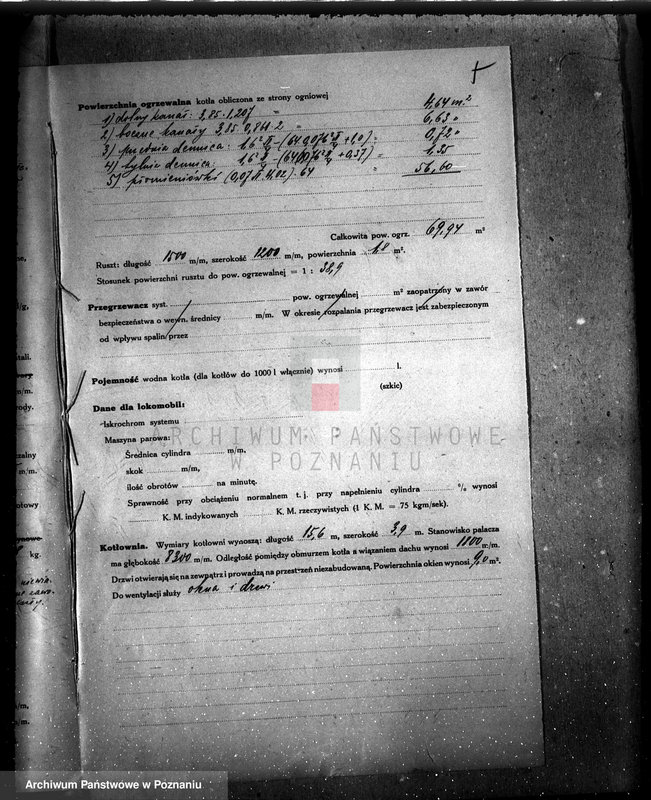 Powierzchnia ogrzewalna kotła obliczona ze strony ogniowej
1) dolny kanał: 3,85 · 1,207 " 4,64 m²
2) boczne kanały 3,85 · 0,861 · 2 " 6,63 "
3) przednia dennica: 0,72 "
4) tylnia dennica: 1,35
5) płomieniówki 56,60
Całkowita pow. ogrz. 69,94 m²
Ruszt: długość 1500 m/m, szerokość 1200 m/m, powierzchnia 1,8 m².
Stosunek powierzchni rusztu do pow. ogrzewalnej = 1 : 38,9
Przegrzewacz syst. pow. ogrzewalnej m² zaopatrzony w zawór
bezpieczeństwa o wewn. średnicy m/m. W okresie rozpalania przegrzewacz jest zabezpieczonym
od wpływu spalin przez
Pojemność wodna kotła (dla kotłów do 1000 l włącznie) wynosi l.
(szkic)
Dane dla lokomobil:
Iskrochron systemu
Maszyna parowa:
Średnica cylindra m/m,
skok m/m,
ilość obrotów na minutę.
Sprawność przy obciążeniu normalnem t. j. przy napełnieniu cylindra % wynosi
K. M. indykowanych K. M. rzeczywistych (1 K. M. = 75 kgm/sek).
Kotłownia. Wymiary kotłowni wynoszą: długość 15,6 m, szerokość 3,9 m. Stanowisko palacza
ma głębokość 8300 m/m. Odległość pomiędzy obmurzem kotła a wiązaniem dachu wynosi 1100 m/m.
Drzwi otwierają się na zewnątrz i prowadzą na przestrzeń niezabudowaną. Powierzchnia okien wynosi 9,0 m².
Do wentylacji służy okna i drzwi
ARCHIWUM PAŃSTWOWE
W POZNANIU
Archiwum Państwowe w Poznaniu